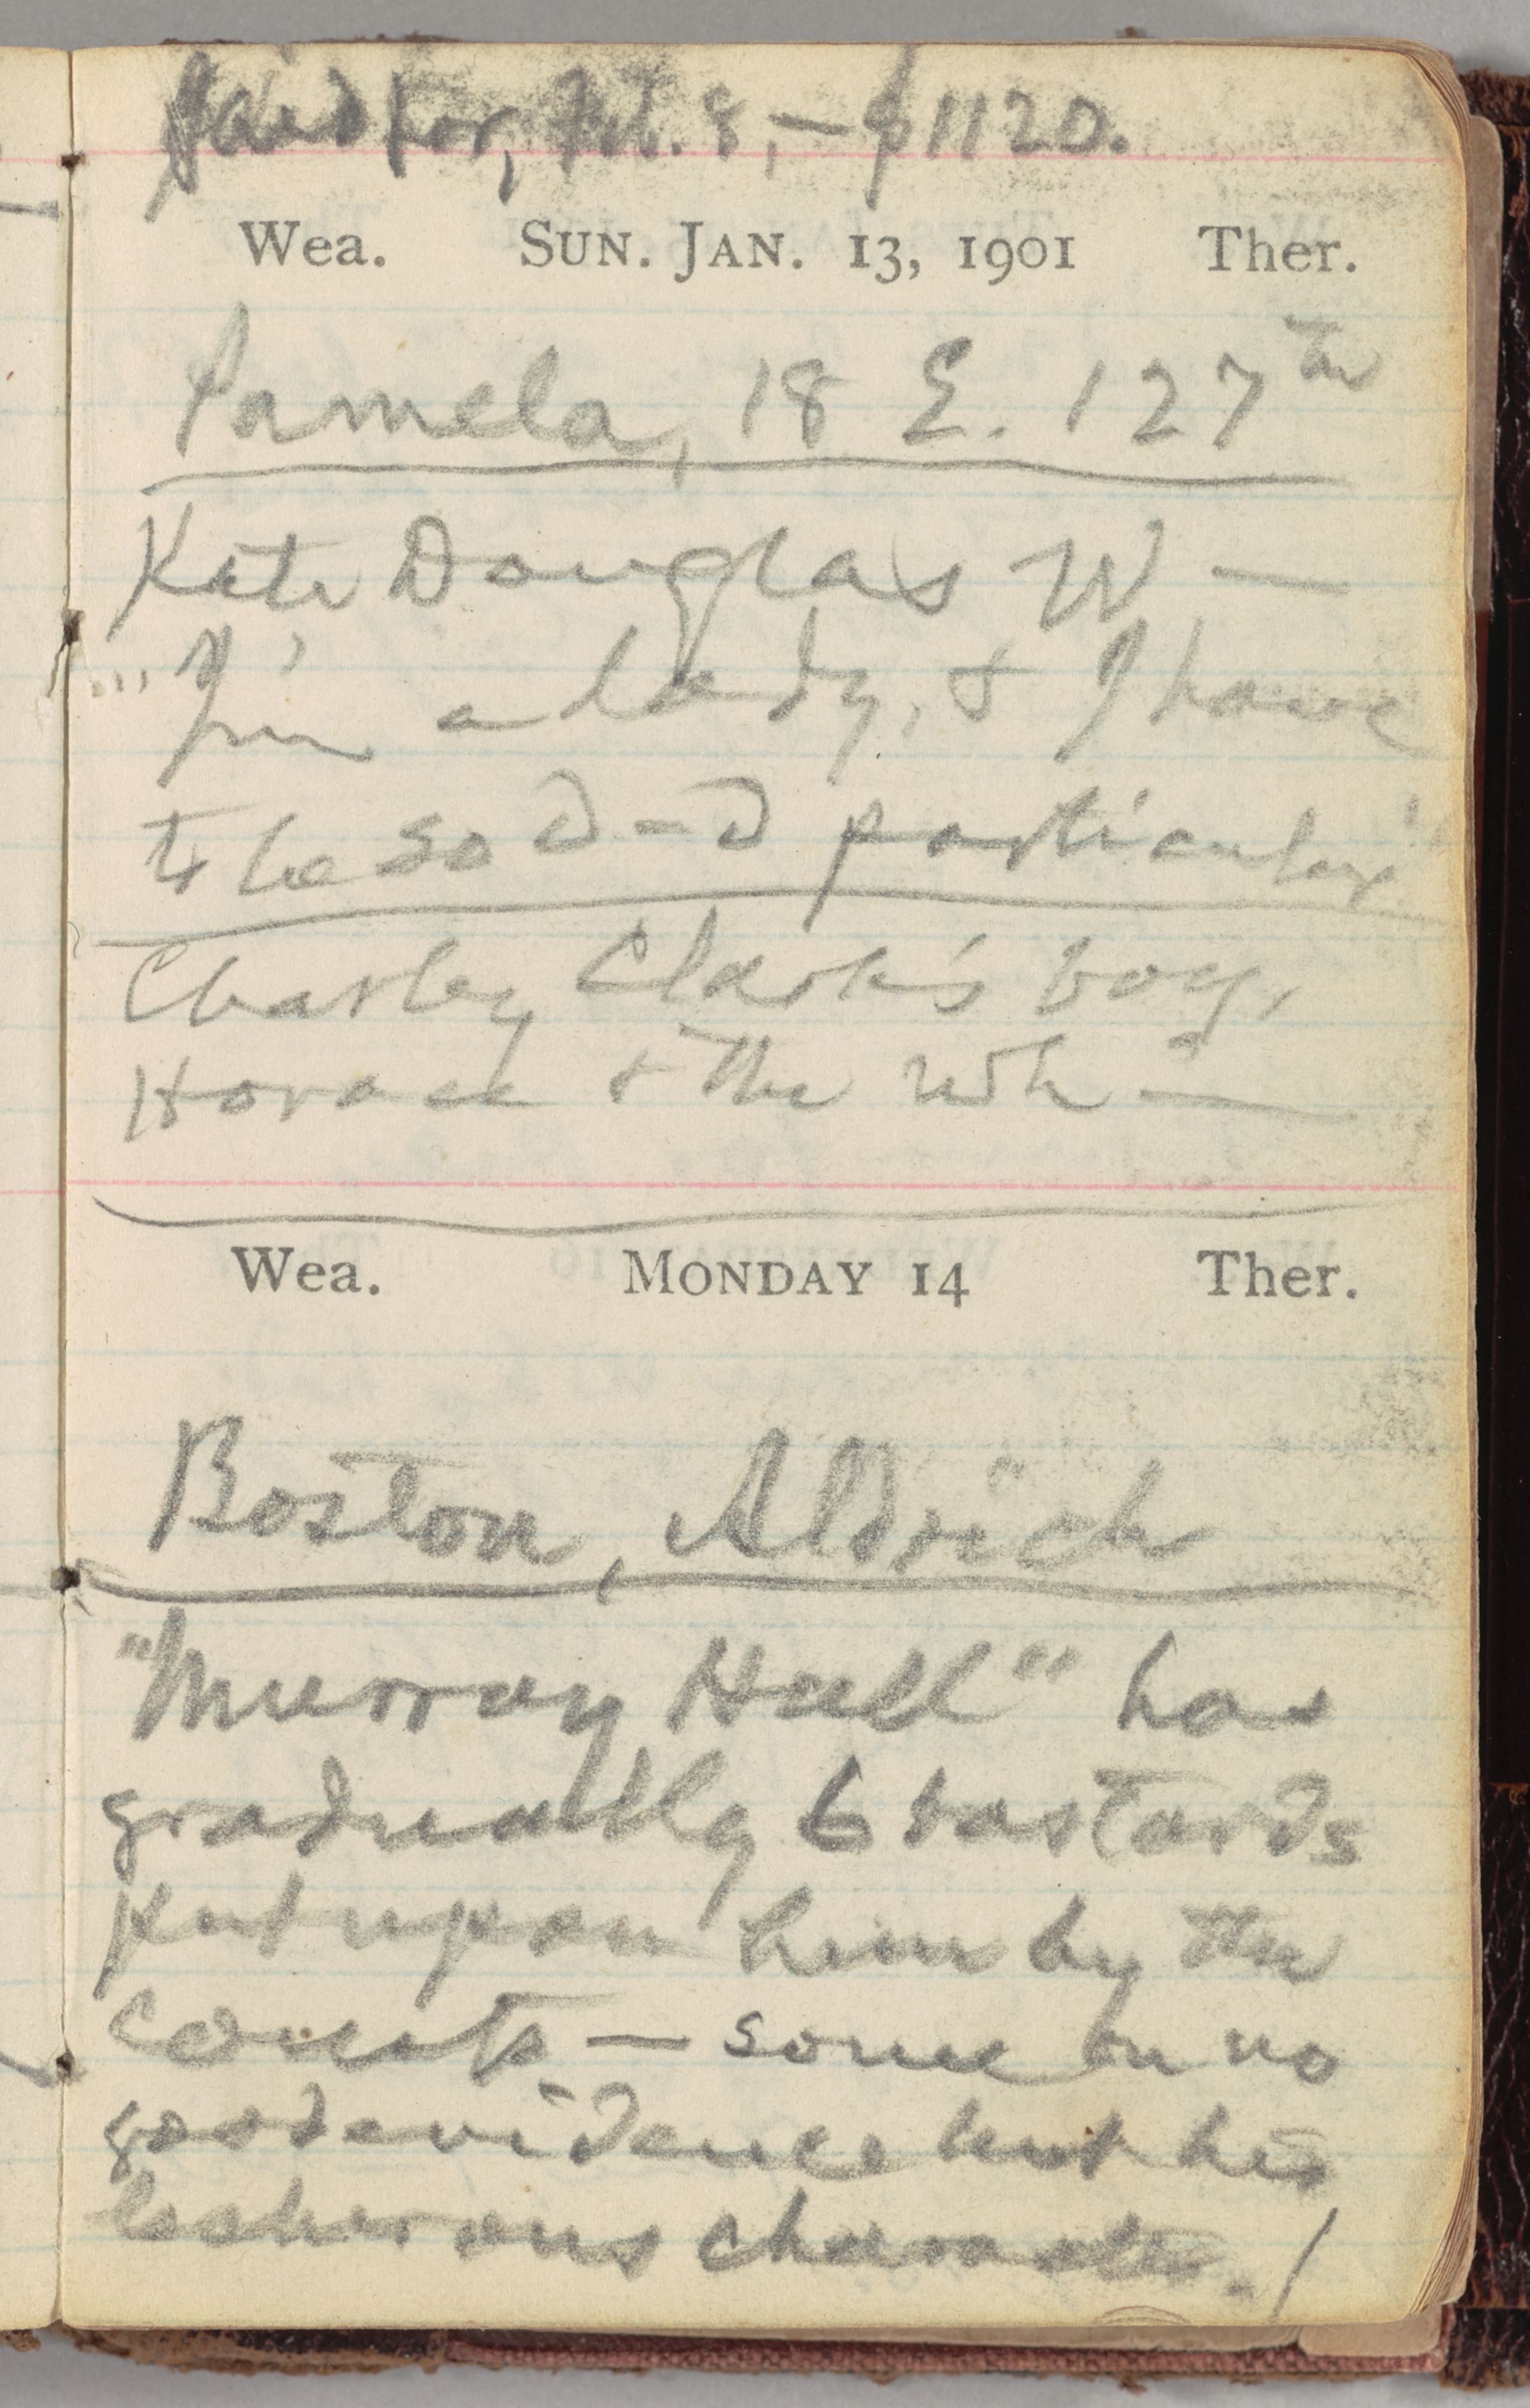 paid for, Feb. 8, — $1120.
Wea. SUN. JAN. 13, 1901 Ther.
Pamela, 18 E. 127th
Kate Douglas W —
"I'm a lady, & I have
to be so d—d particular"
Charley Clark's boy,
Horace & the Wh —
Wea. MONDAY 14 Ther.
Boston, Aldrich
"Murray Hall" has
gradually 6 bastards
put upon him by the
courts — some on no
good evidence but his
lecherous character. /